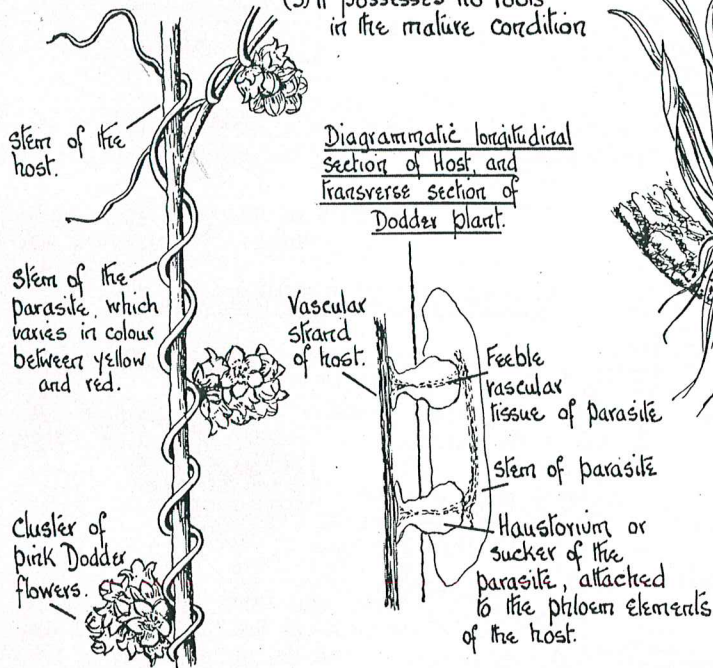 (3) It possesses no roots
in the mature condition
Stem of the
host.
Diagrammatic longitudinal
section of Host, and
transverse section of
Dodder plant.
Stem of the
parasite, which
varies in colour
between yellow
and red.
Vascular
strand
of host.
Feeble
vascular
tissue of parasite
Stem of parasite
Cluster of
pink Dodder
flowers.
Haustorium or
sucker of the
parasite, attached
to the phloem elements
of the host.